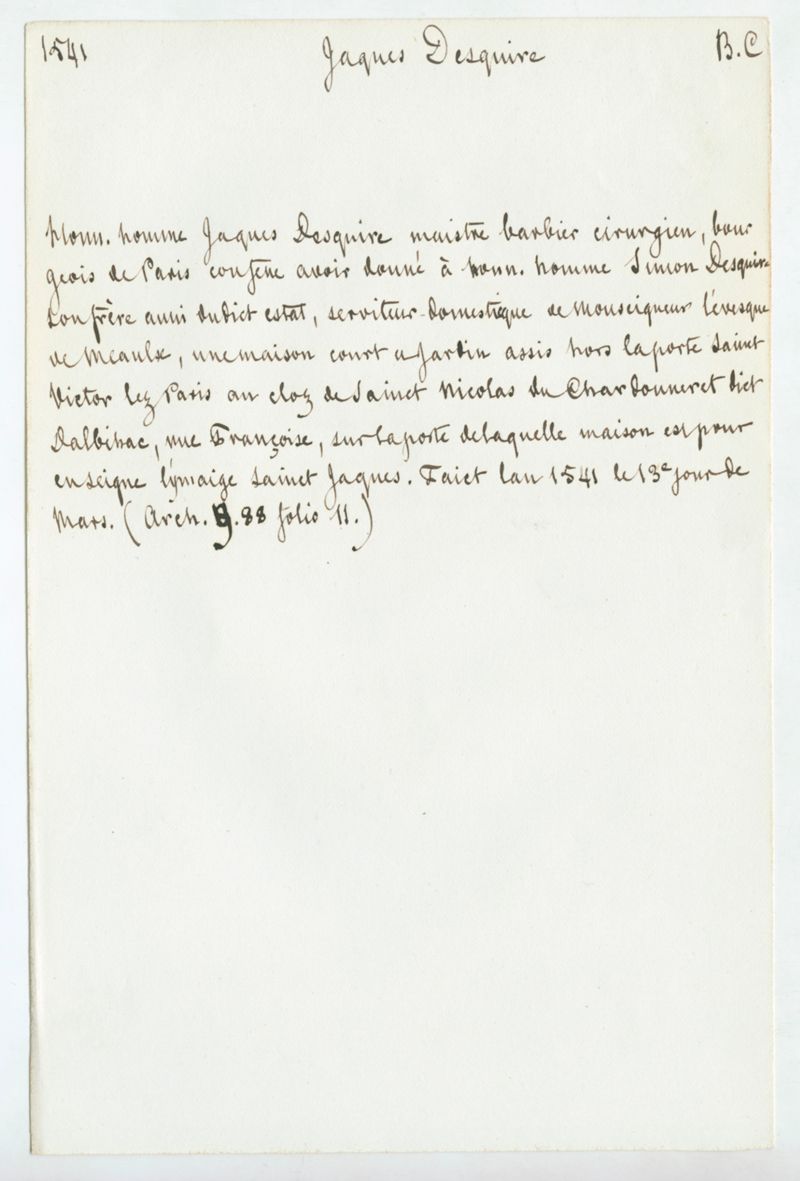 1541 Jaques Desquire B.C
Honn. homme Jaques Desquire maistre barbier cirurgien, bour
geois de Paris confesse avoir donné à honn. homme Simon Desquire
son frère aussi dudict estat, serviteur domestique de Monseigneur l'évesque
de Meaulx, une maison court et Jardin assis hors la porte Saint
Victor lez Paris au cloz de Sainct Nicolas du Chardonneret dict
Dalbihac, rue Françoise, sur la porte de laquelle maison est pour
enseigne l'ymaige Sainct Jaques. Faict lan 1541 le 13e jour de
Mars. (Arch. .88 folio 11.)